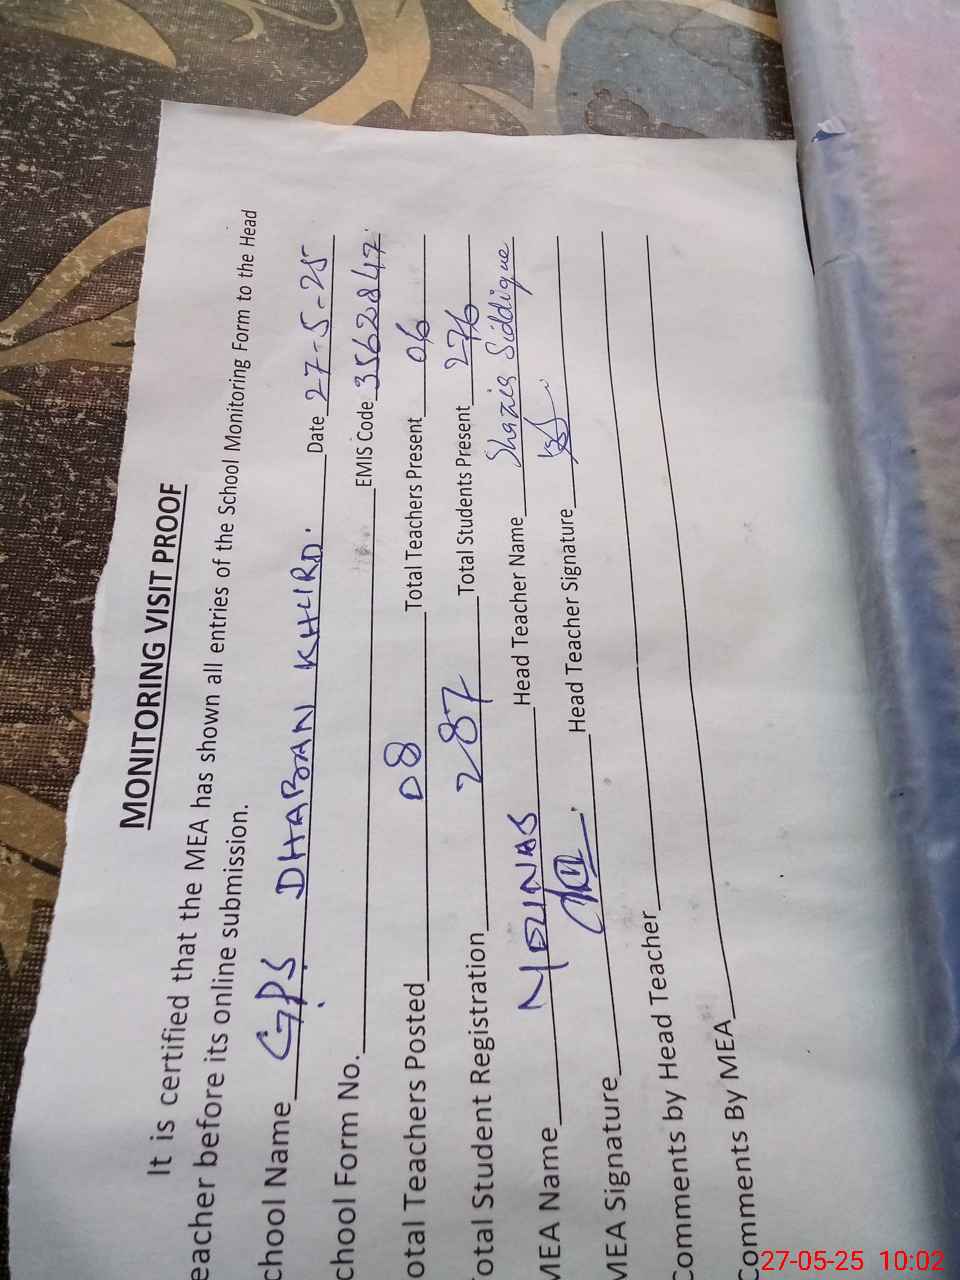 MONITORING VISIT PROOF
It is certified that the MEA has shown all entries of the School Monitoring Form to the Head
eacher before its online submission.
chool Name GPS DHABAN KHURD. Date 27-5-25
chool Form No. EMIS Code 35628147
otal Teachers Posted 08 Total Teachers Present 06
otal Student Registration 287 Total Students Present 276
MEA Name Head Teacher Name Shazia Siddique
MEA Signature Head Teacher Signature
Comments by Head Teacher
Comments By MEA
27-05-25 10:02